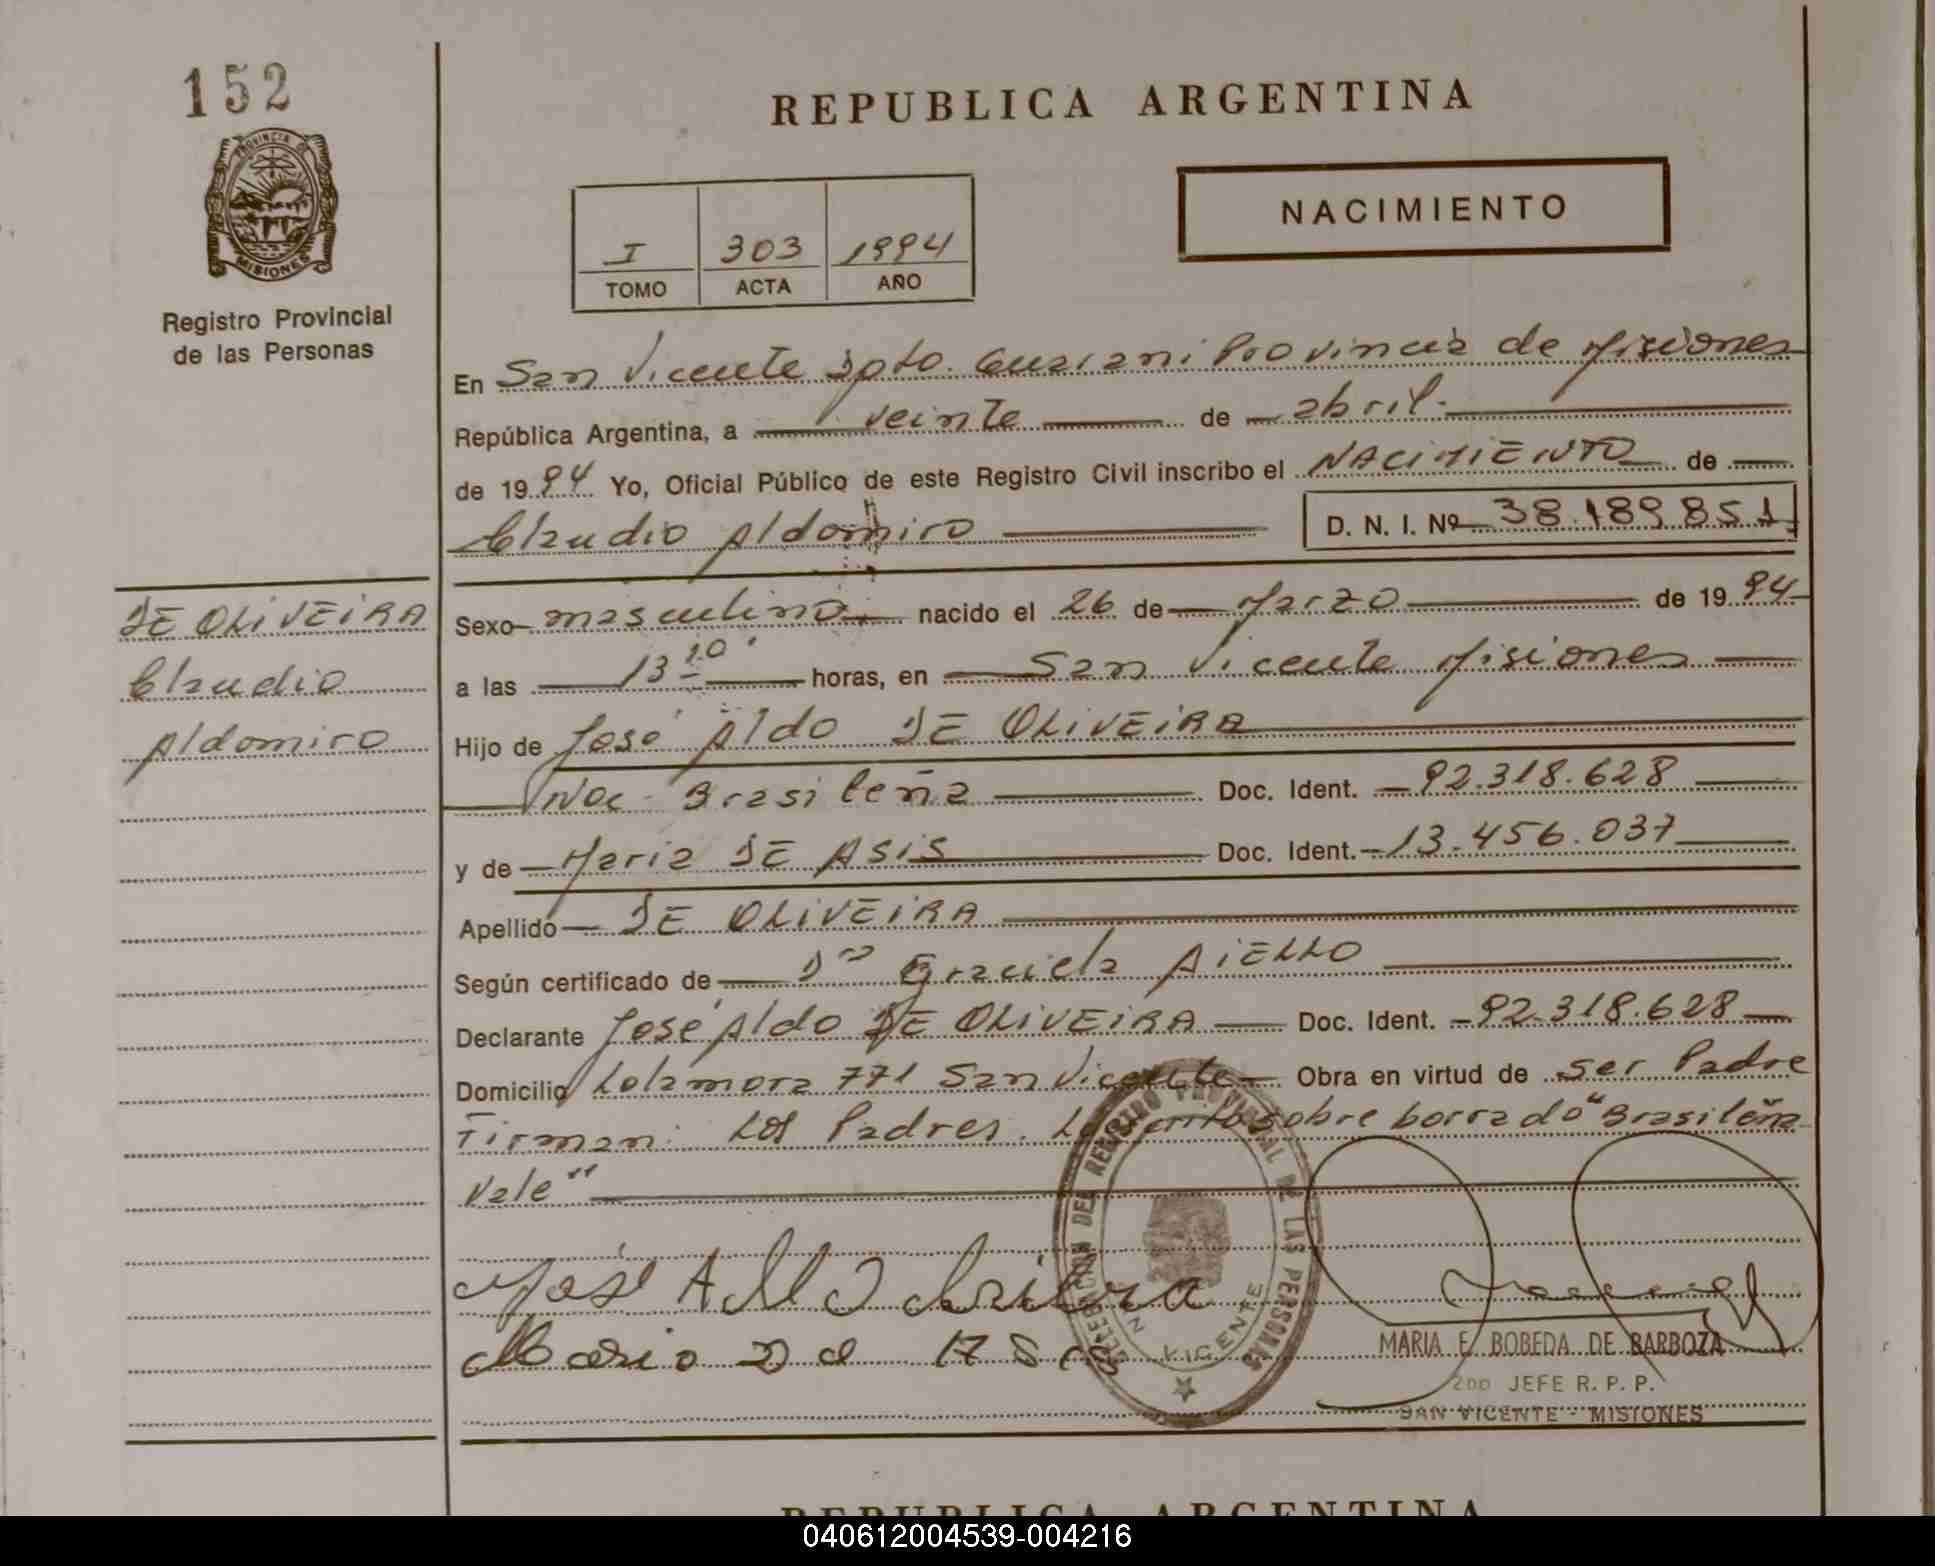 152
PROVINCIA DE
MISIONES
Registro Provincial
de las Personas
REPUBLICA ARGENTINA
NACIMIENTO
I 303 1994
TOMO ACTA AÑO
En San Vicente Dpto. Guarani Provincia de Misiones
República Argentina, a veinte de abril.
de 1994 Yo, Oficial Público de este Registro Civil inscribo el NACIMIENTO de
Claudio Aldomiro D. N. I. Nº 38.189.851
DE OLIVEIRA
Claudio
Aldomiro
Sexo masculino nacido el 26 de Marzo de 1994
a las 13 10 horas, en San Vicente Misiones
Hijo de José Aldo DE OLIVEIRA
Nac. Brasileña Doc. Ident. 92.318.628
y de Maria DE ASIS Doc. Ident. 13.456.037
Apellido DE OLIVEIRA
Según certificado de Dra Graciela AIELLO
Declarante José Aldo DE OLIVEIRA Doc. Ident. 92.318.628
Domicilio Lola mora 771 San Vicente Obra en virtud de ser Padre
Firman: Los Padres. Lo escrito sobre borrado "Brasileña
Vale"
DELEGACION DEL REGISTRO PROVINCIAL DE LAS PERSONAS
VICENTE
MARIA E. BOBEDA DE BARBOZA
2DO JEFE R. P. P.
SAN VICENTE - MISIONES
REPUBLICA ARGENTINA
040612004539-004216